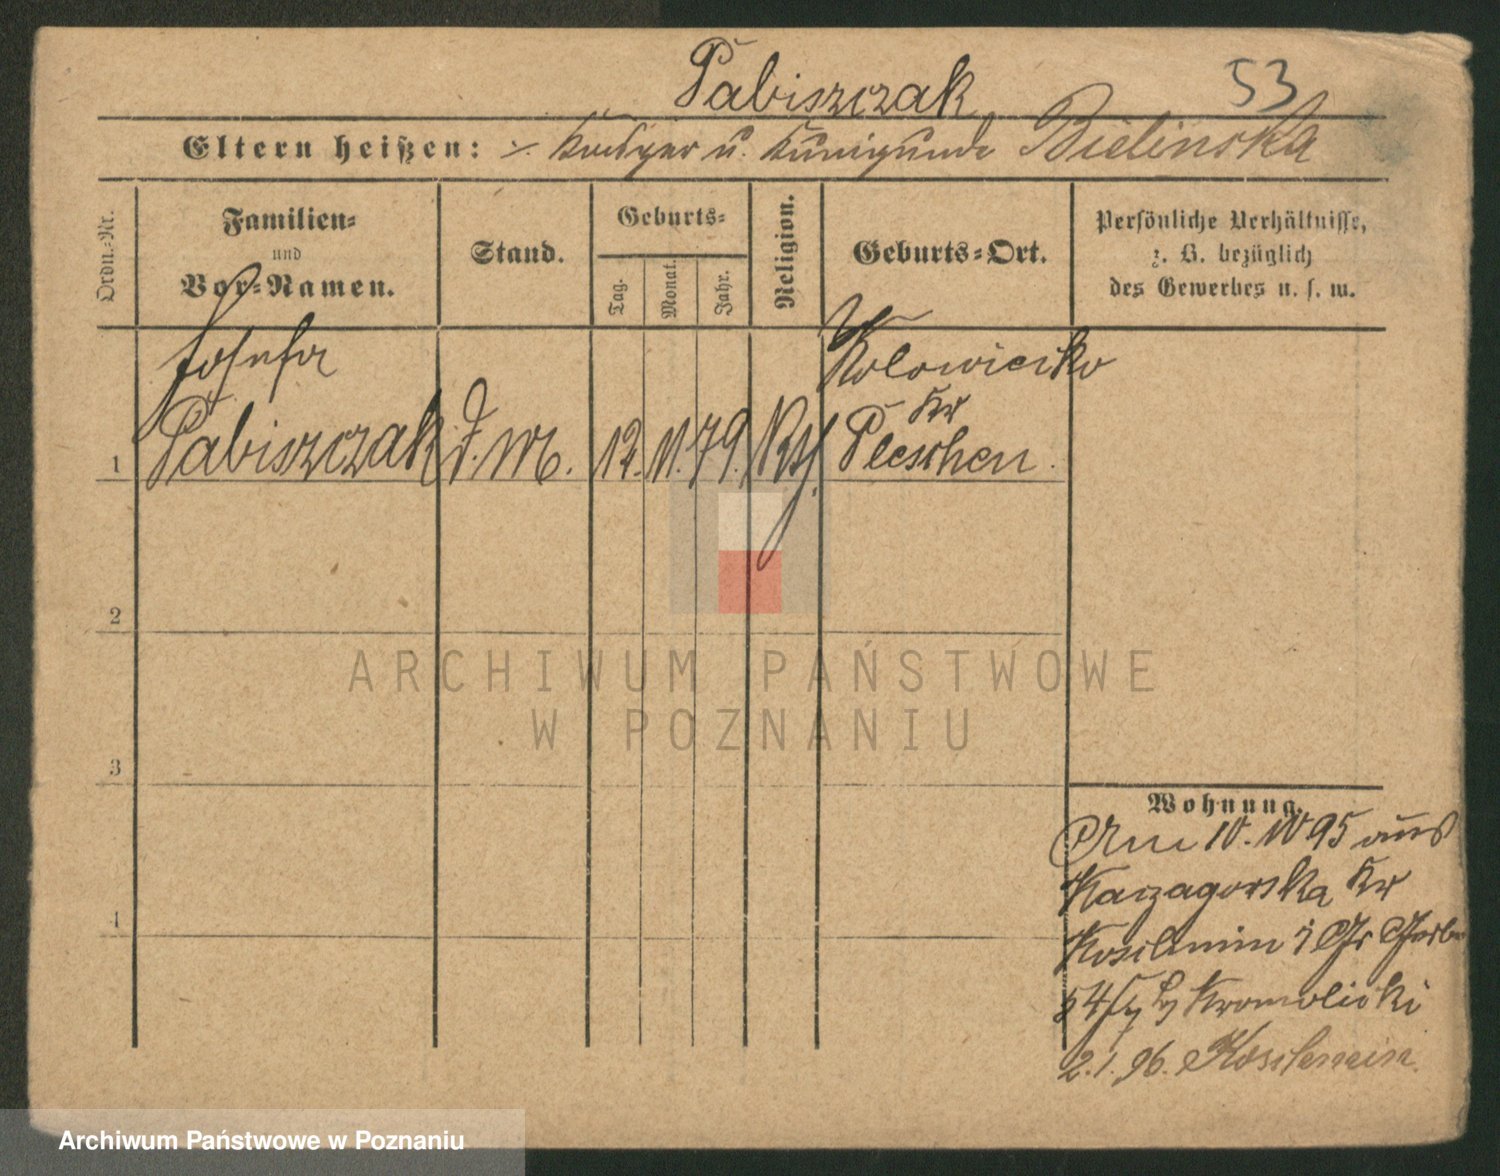 Pabiszczak
53
Eltern heißen: Kaspar u. Kunigunde Bielinska
Ordn.-Nr.
Familien-
und
Vor-Namen.
Stand.
Geburts-
Tag.
Monat.
Jahr.
Religion.
Geburts-Ort.
Persönliche Verhältnisse,
z. B. bezüglich
des Gewerbes u. s. w.
1
Josefa
Pabiszczak
d. M.
12.
11.
79.
Kth.
Kolowiecko
Kr
Pleschen.
2
3
4
Wohnung.
Am 10. 10 95 aus
Kaczagorska Kr
Koschmin Gr Gerber
54 Kromolicki
2.1.96. Koschmin.
ARCHIWUM PAŃSTWOWE
W POZNANIU
Archiwum Państwowe w Poznaniu